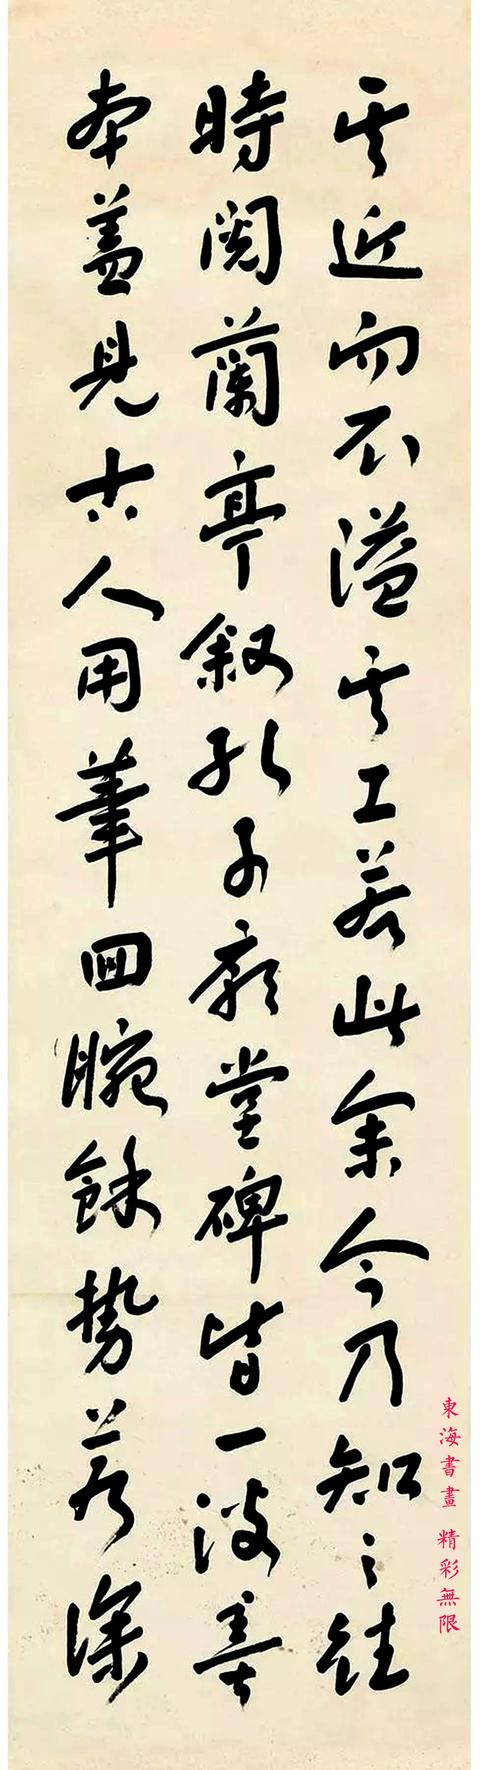 其近而不溢其工若此余今乃知之往
時閱蘭亭叙孔子廟堂碑皆一淡墨
本盖見古人用筆回腕餘勢若深
東海書畫 精彩無限